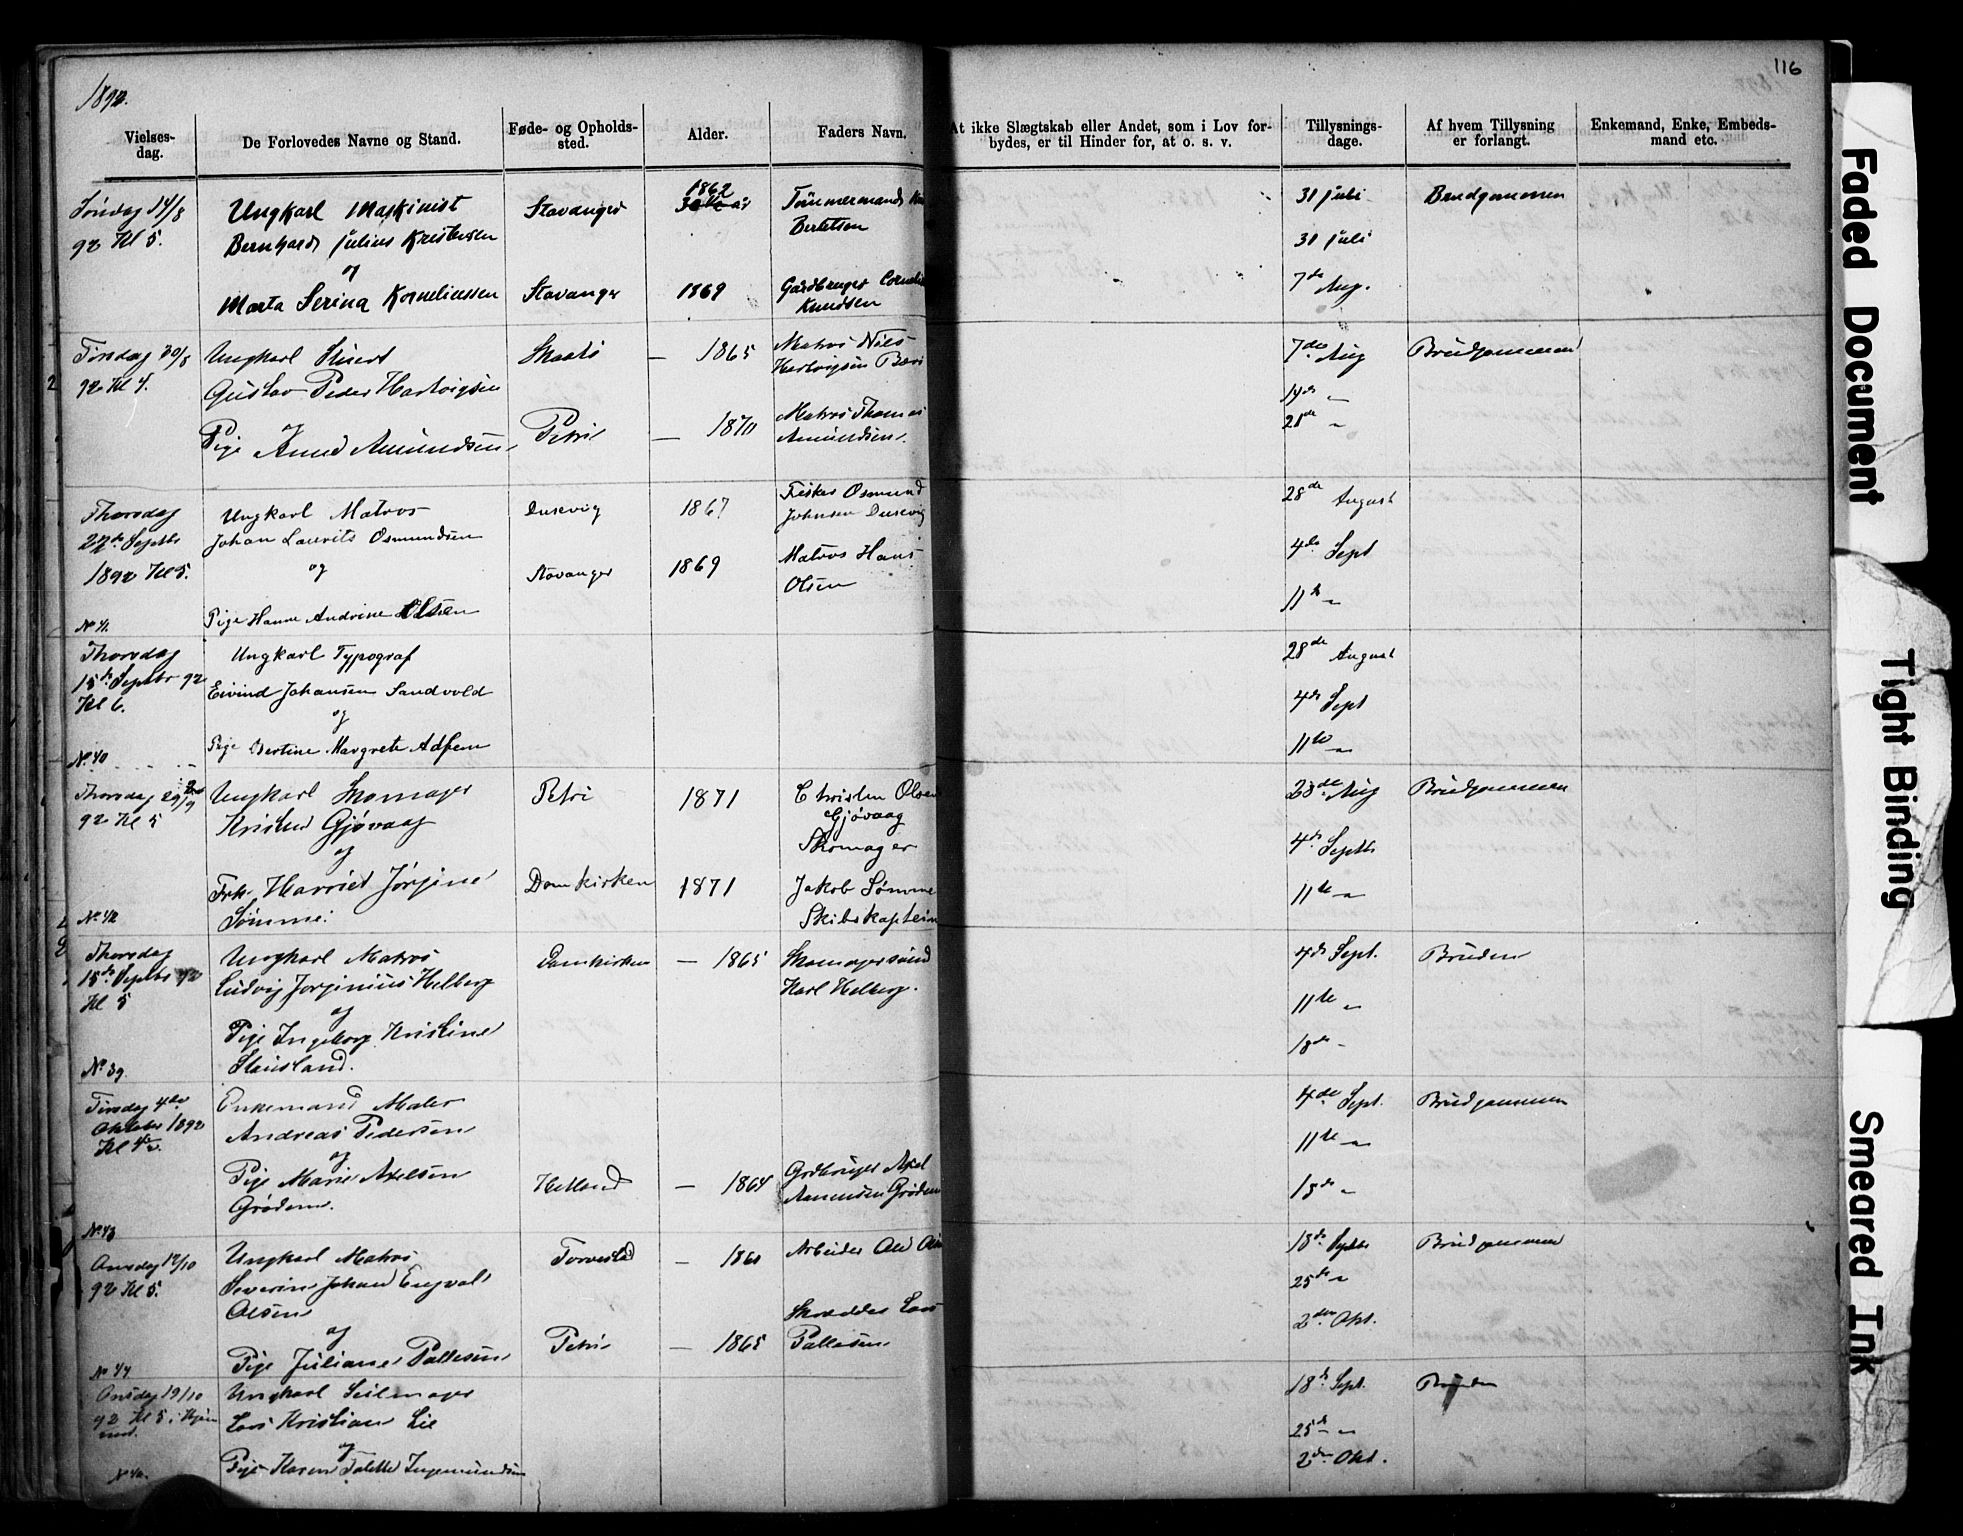 1892.
116
Vielses-
dag.
De Forlovedes Navne og Stand.
Føde- og Opholds-
sted.
Alder.
Faders Navn.
At ikke Slægtskab eller Andet, som i Lov for-
bydes, er til Hinder for, at o. s. v.
Tillysnings-
dage.
Af hvem Tillysning
er forlangt.
Enkemand, Enke, Embeds-
mand etc.
Søndag 14/8
92 Kl 5.
Ungkarl Maskinist
Bernhard Julius Kristensen
og
Marta Serina Korneliussen
Stavanger
Stavanger
1862
1869
Tømmermand
Bertelsen
Gårdbruger
Knudsen
31 juli
31 juli
7de Aug.
Brudgommen
Tirsdag 30/8
92 Kl 4.
Ungkarl
Gustav Peder Hartvigsen
og
Pige Anne Amundsen
Petri
— 1865
— 1870
Matros Nils
Hartvigsen
Matros Thomas
Amundsen
7de Aug
14de "
21de "
Brudgommen
Thorsdag
Septbr
1892 Kl 5.
Ungkarl Matros
Johan Laurits Osmundsen
og
Pige Hanne Andrine Olsen
Dusevig
Stavanger
1867
1869
Fisker Osmund
Johnsen Dusevig
Matros Hans
Olsen
28de August
4de Sept
11te "
N 41.
Thorsdag
15de Septbr 92
Kl 6.
Ungkarl Typograf
Eivind Johansen Sandvold
og
Pige Bertine Margrete
28de August
4de Sept
11te "
N. 40
Thorsdag 29/9
92 Kl 5
Ungkarl Skomager
Kristen Gjøvaag
og
Frk. Harriet Jørgine
Sømme.
Petri
Domkirken
1871
1871
Christen Olsen
Gjøvaag
Skomager
Jakob Sømme
Skibskaptein
28de Aug
4de Septbr
11te "
Brudgommen
N. 42
Thorsdag
15de Septbr 92
Kl 5
Ungkarl Matros
Ludvig Jørginius Helberg
og
Pige Ingeborg Kristine
Domkirken
— 1865
Skomagersvend
Karl Helberg.
4de Sept.
11te "
18de "
Bruden
N. 39.
Tirsdag 4de
Oktober 1892
Enkemand Maler
Andreas Pedersen
og
Pige Marie Axelsen
Grødem.
Hetland
— 1864
Axel
Grødem
4de Sept.
11te "
18de "
Brudgommen
N. 43
Onsdag 12/10
92 Kl 5.
Ungkarl Matros
Severin Johan Engvald
Olsen
og
Pige Juliane Pallesen
Torvestad
Petri
—
— 1865
Arbeider
Skrædder Lars
Pallesen
18de Septbr
25de "
2den Okt.
Brudgommen
N. 44
Onsdag 19/10
92 Kl 5 i Hjem
met.
Ungkarl Seilmager
Lars Kristian Lie
og
Pige Karen Talette Ingemundsen
18de Sept.
25de "
2den Okt.
Bruden
Faded Document
Tight Binding
Smeared Ink